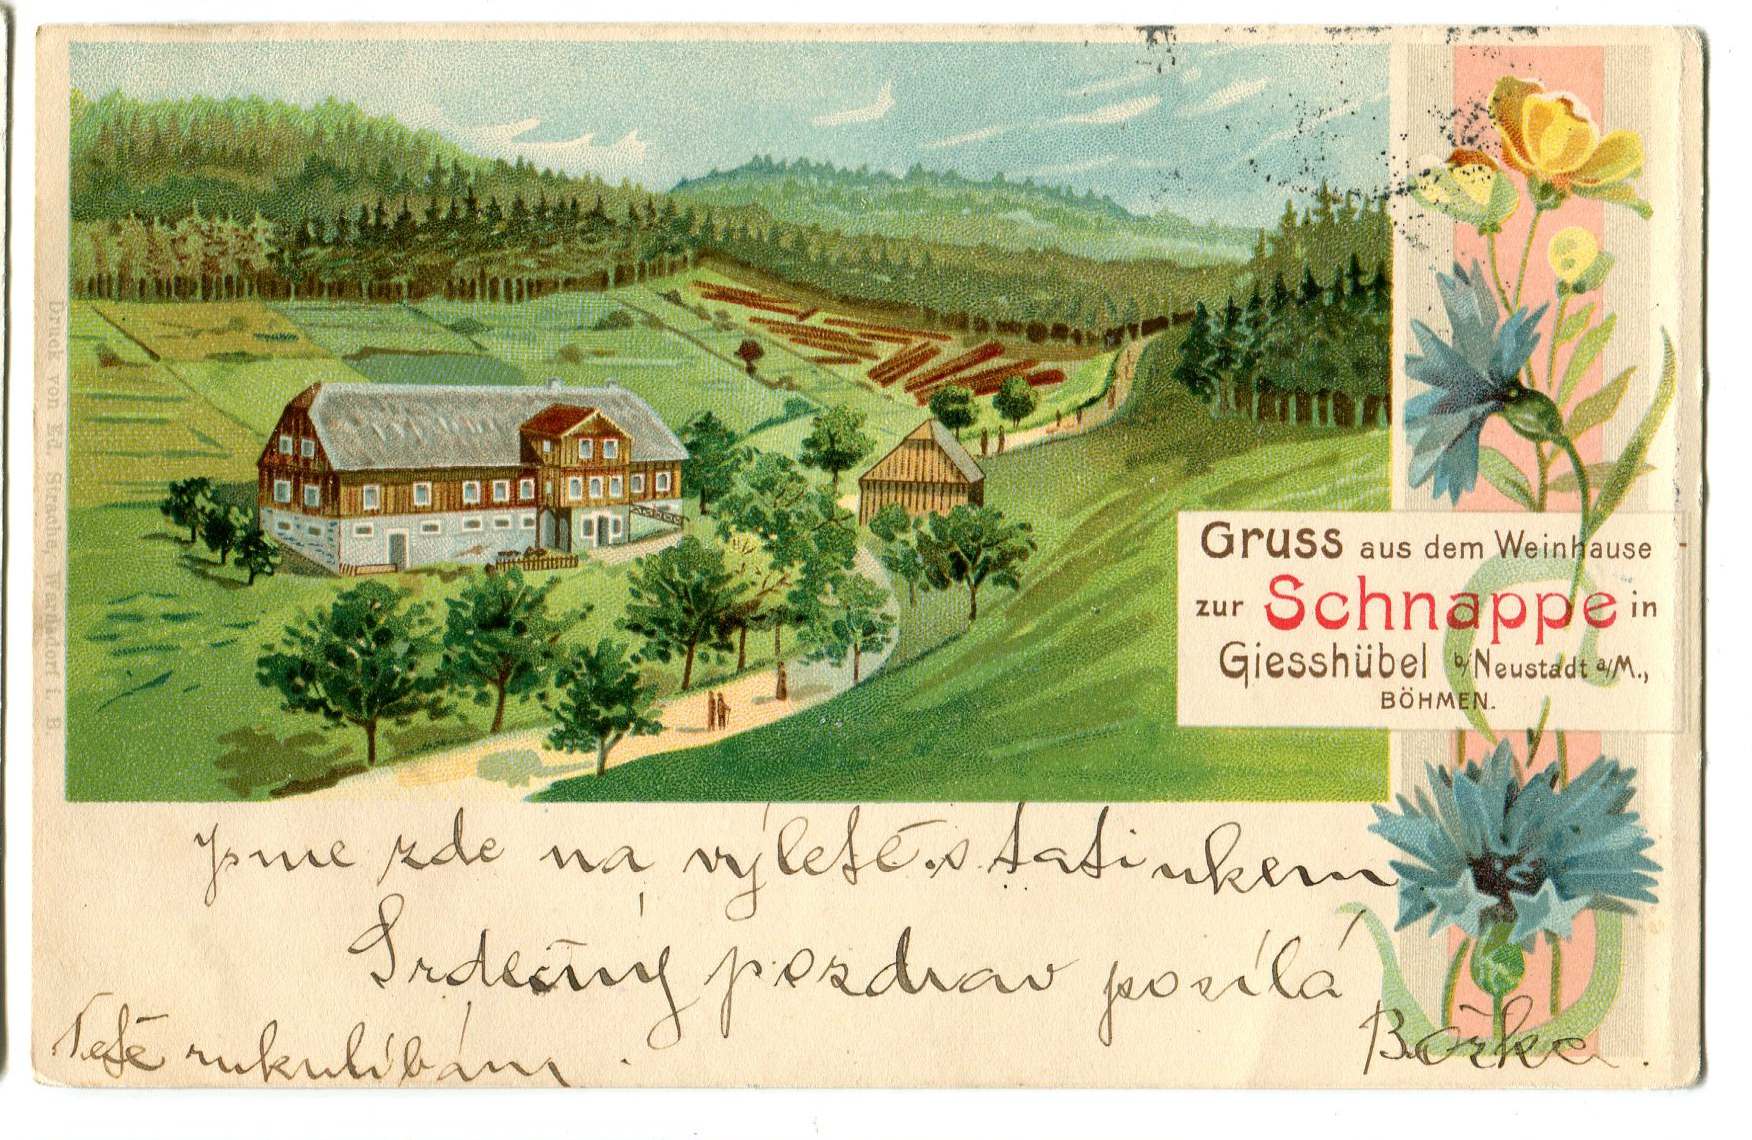 Gruss aus dem Weinhause
zur Schnappe in
Giesshübel b/Neustadt a/M.,
BÖHMEN.
Druck von Ed. Strache, Warnsdorf i. B.
Jsme zde na výletě s tatínkem
Srdečný pozdrav posílá
Božka.
Tetě rukulíbám.